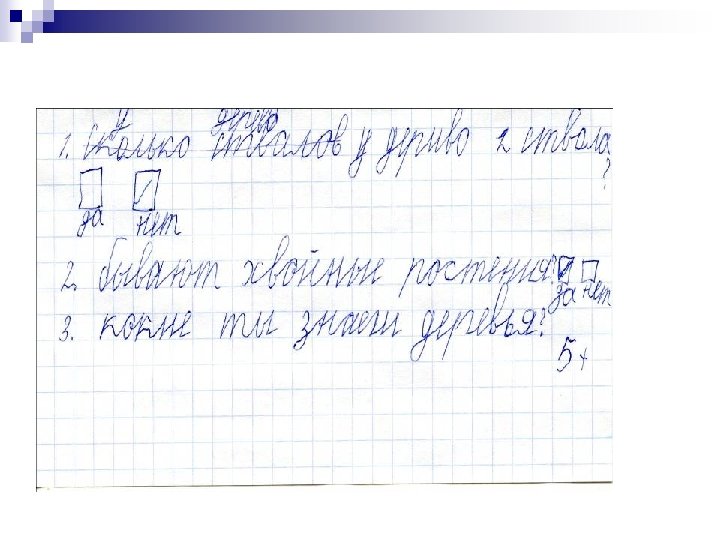 у дерево
1. Сколько стволов у дериво 2 ствола
?
да нет
2. бывают хвойные ростения?
да нет
3. какие ты знаеш деревья?
5+